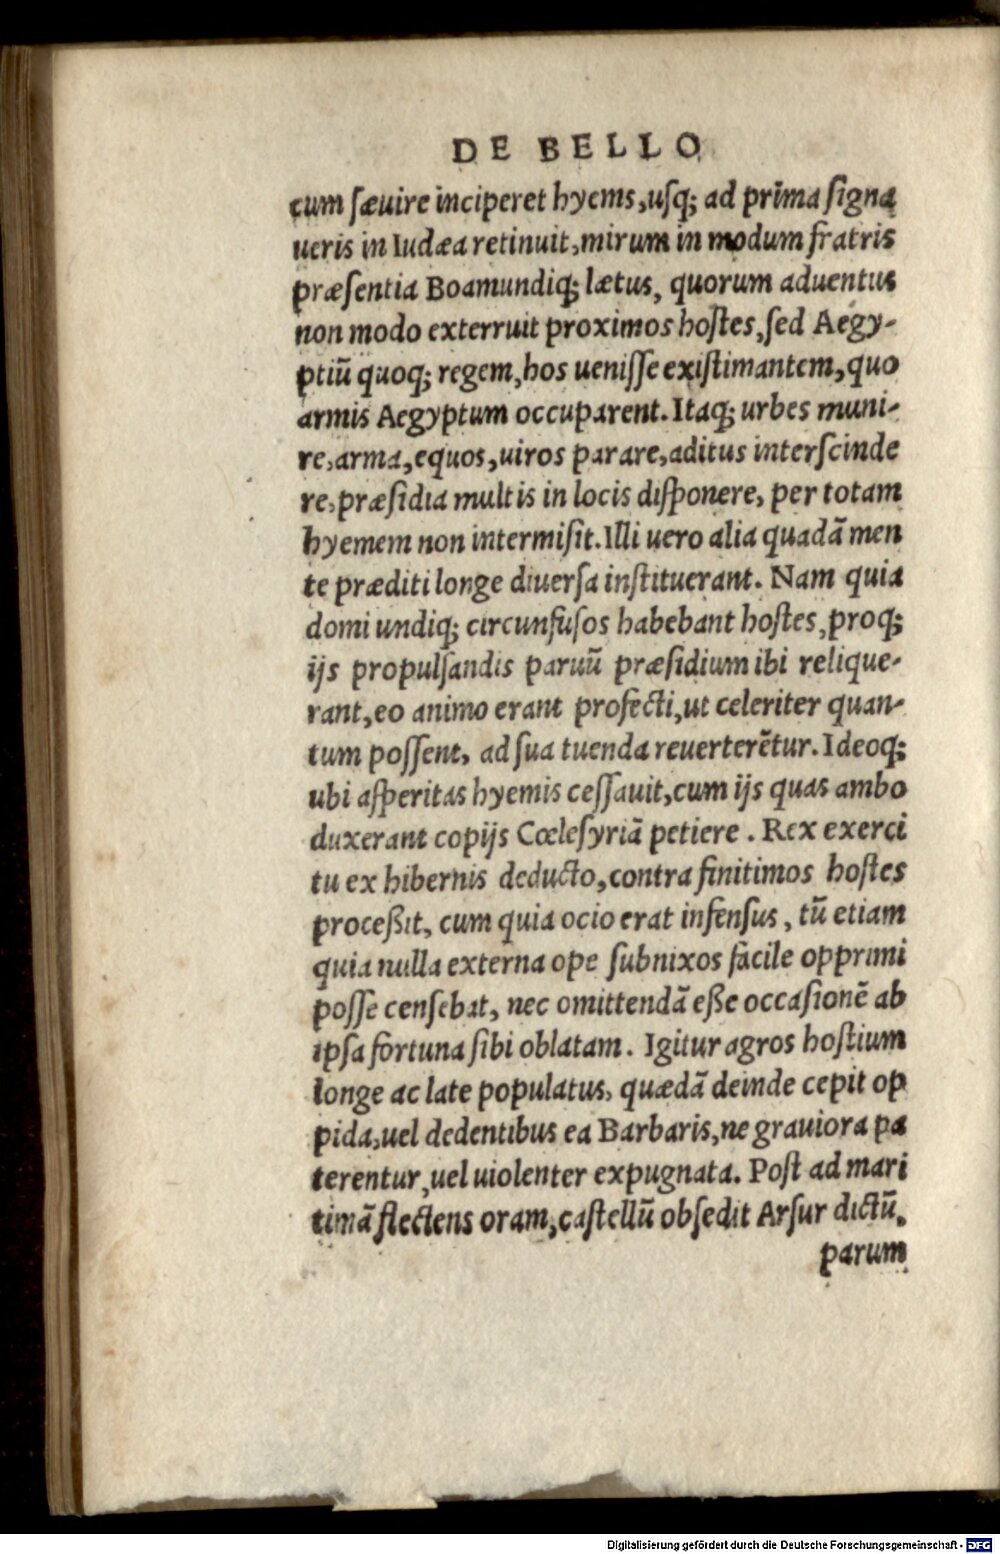 DE BELLO
cum sæuire inciperet hyems, usq; ad prima signa
ueris in Iudæa retinuit, mirum in modum fratris
præsentia Boamundiq; lætus, quorum aduentus
non modo exterruit proximos hostes, sed Aegy-
ptiū quoq; regem, hos uenisse existimantem, quo
armis Aegyptum occuparent. Itaq; urbes muni-
re, arma, equos, uiros parare, aditus interscinde
re, præsidia multis in locis disponere, per totam
hyemem non intermisit. Illi uero alia quadā men
te præditi longe diuersa instituerant. Nam quia
domi undiq; circunfusos habebant hostes, proq;
ijs propulsandis paruū præsidium ibi relique-
rant, eo animo erant profecti, ut celeriter quan-
tum possent, ad sua tuenda reuerterētur. Ideoq;
ubi asperitas hyemis cessauit, cum ijs quas ambo
duxerant copijs Cœlesyriā petiere. Rex exerci
tu ex hibernis deducto, contra finitimos hostes
proceßit, cum quia ocio erat infensus, tū etiam
quia nulla externa ope subnixos facile opprimi
posse censebat, nec omittendā eße occasionē ab
ipsa fortuna sibi oblatam. Igitur agros hostium
longe ac late populatus, quædā deinde cepit op
pida, uel dedentibus ea Barbaris, ne grauiora pa
terentur, uel uiolenter expugnata. Post ad mari
timā flectens oram, castellū obsedit Arsur dictū,
parum
Digitalisierung gefördert durch die Deutsche Forschungsgemeinschaft - DFG